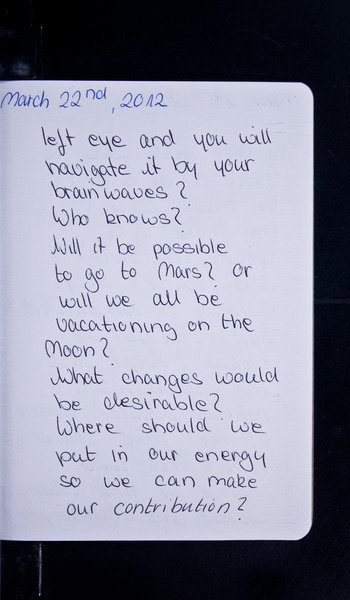 March 22nd, 2012
left eye and you will
navigate it by your
brainwaves?
Who knows?
Will it be possible
to go to Mars? Or
will we all be
vacationing on the
Moon?
What changes would
be desirable?
Where should we
put in our energy
so we can make
our contribution?